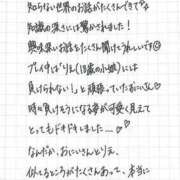 知らない世界のお話がたくさんできて
知識の深さには驚かされました！
興味深いお話をたくさん聞けてうれしいです☺
プレイ中は"りえ(18歳の小娘)には
負けられない！と頑張っていたおにいさん♡
時に負けそうになる姿が可愛く見えて
とってもドキドキしました….♡♡
なんだか、おにいさんとりえ、
似てるところがたくさんあって、本当に